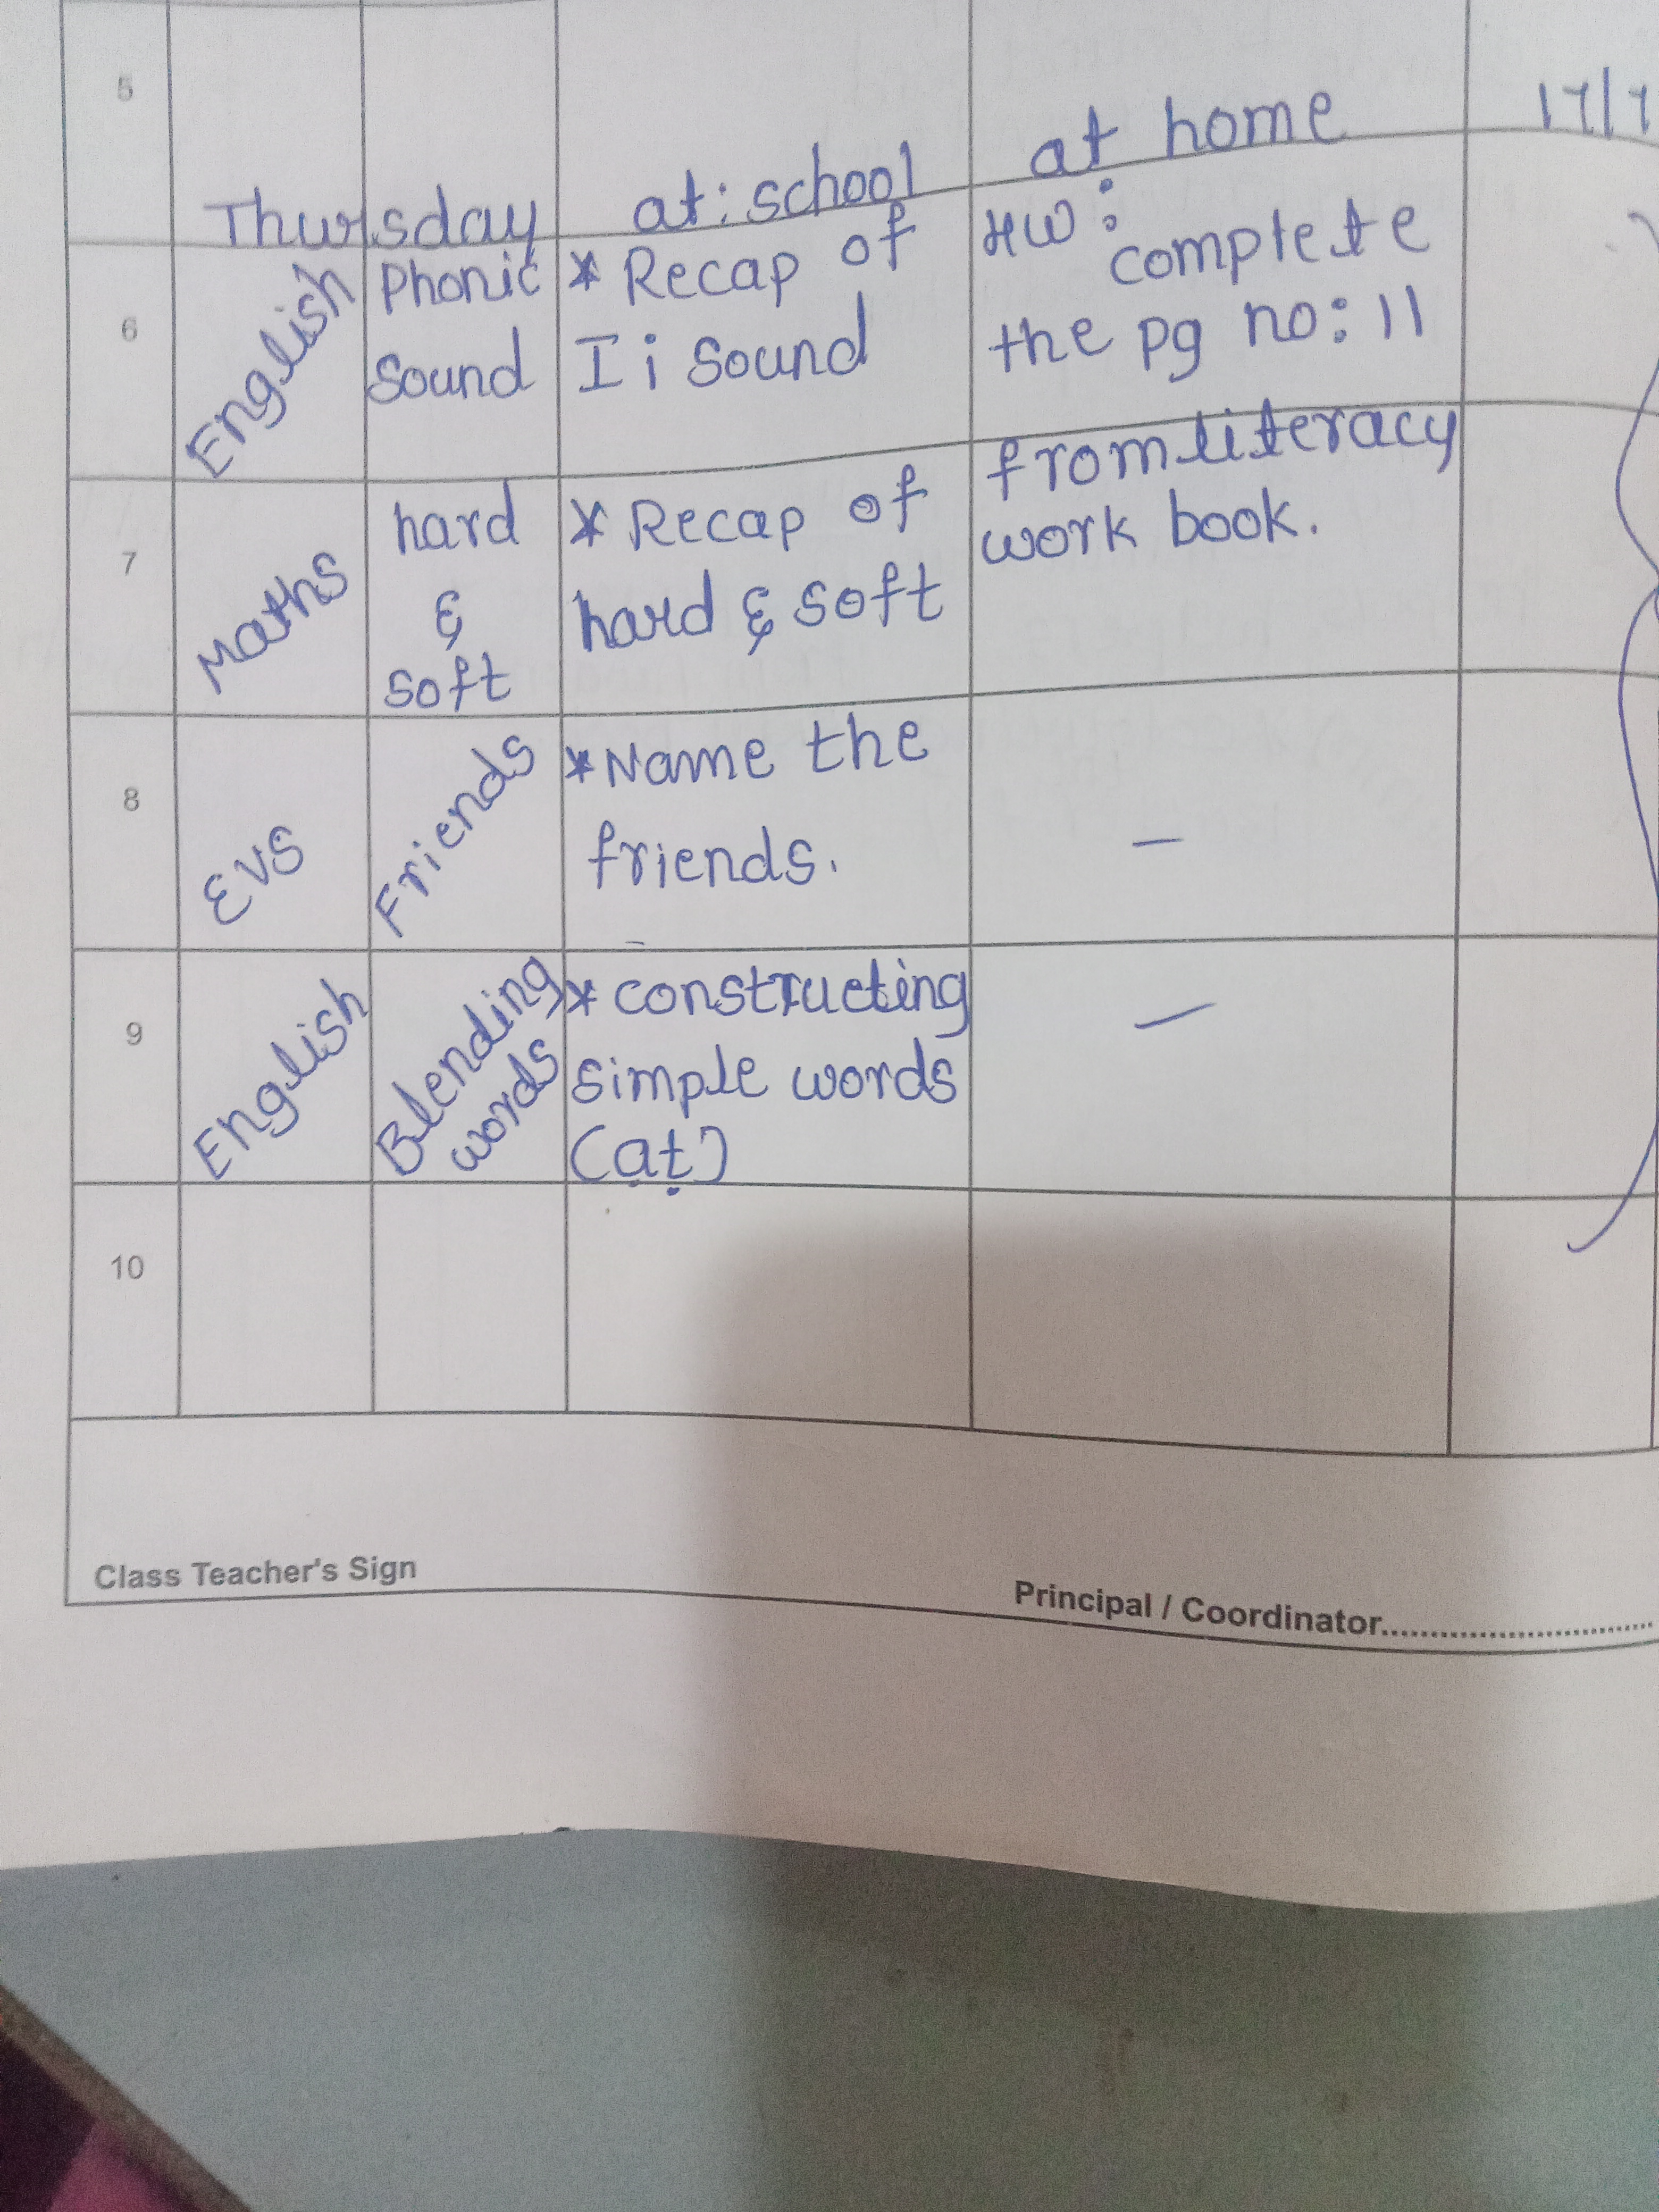 5
Thursday at: school at home 17/7
6 English Phonic Sound * Recap of I i Sound HW: complete the pg no: 11 from literacy work book.
7 Maths hard & soft * Recap of hard & soft
8 EVS Friends * Name the friends. –
9 English Blending words * constructing simple words (at) –
10
Class Teacher's Sign
Principal / Coordinator..............................